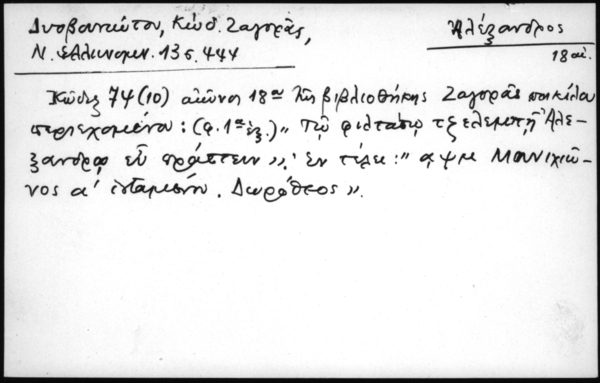 Δυοβουνιώτου, Κώδ. Ζαγορᾶς,
Ν. Ἑλληνομν. 13 σ. 444
Ἀλέξανδρος
18 αἰ.
Κῶδιξ 74 (10) αἰῶνος 18ου τῆς βιβλιοθήκης Ζαγορᾶς ποικίλα
περιεχομένα : (φ. 1α ἑξ.) „ Τῷ φιλτάτῳ τζελεμπῇ Ἀλε-
ξάνδρῳ εὖ πράττειν ”. ἐν τέλει : " αψμ Μουνιχιῶ-
νος α' ἱσταμένου . Δωρόθεος ”.